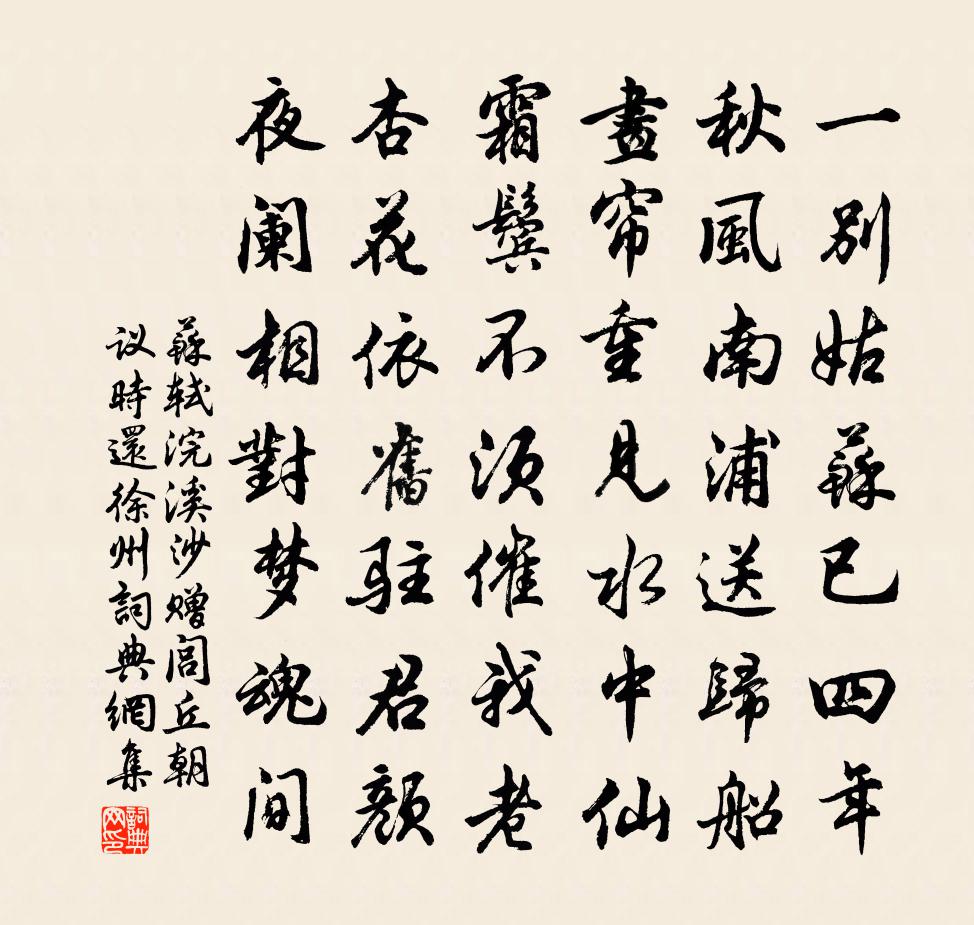 一别姑蘇已四年
秋風南浦送歸船
畫帘重見水中仙
霜鬢不須催我老
杏花依舊駐君顏
夜阑相對梦魂间
蘇軾浣溪沙赠闾丘朝
议時還徐州詞典網集
詞典
网印